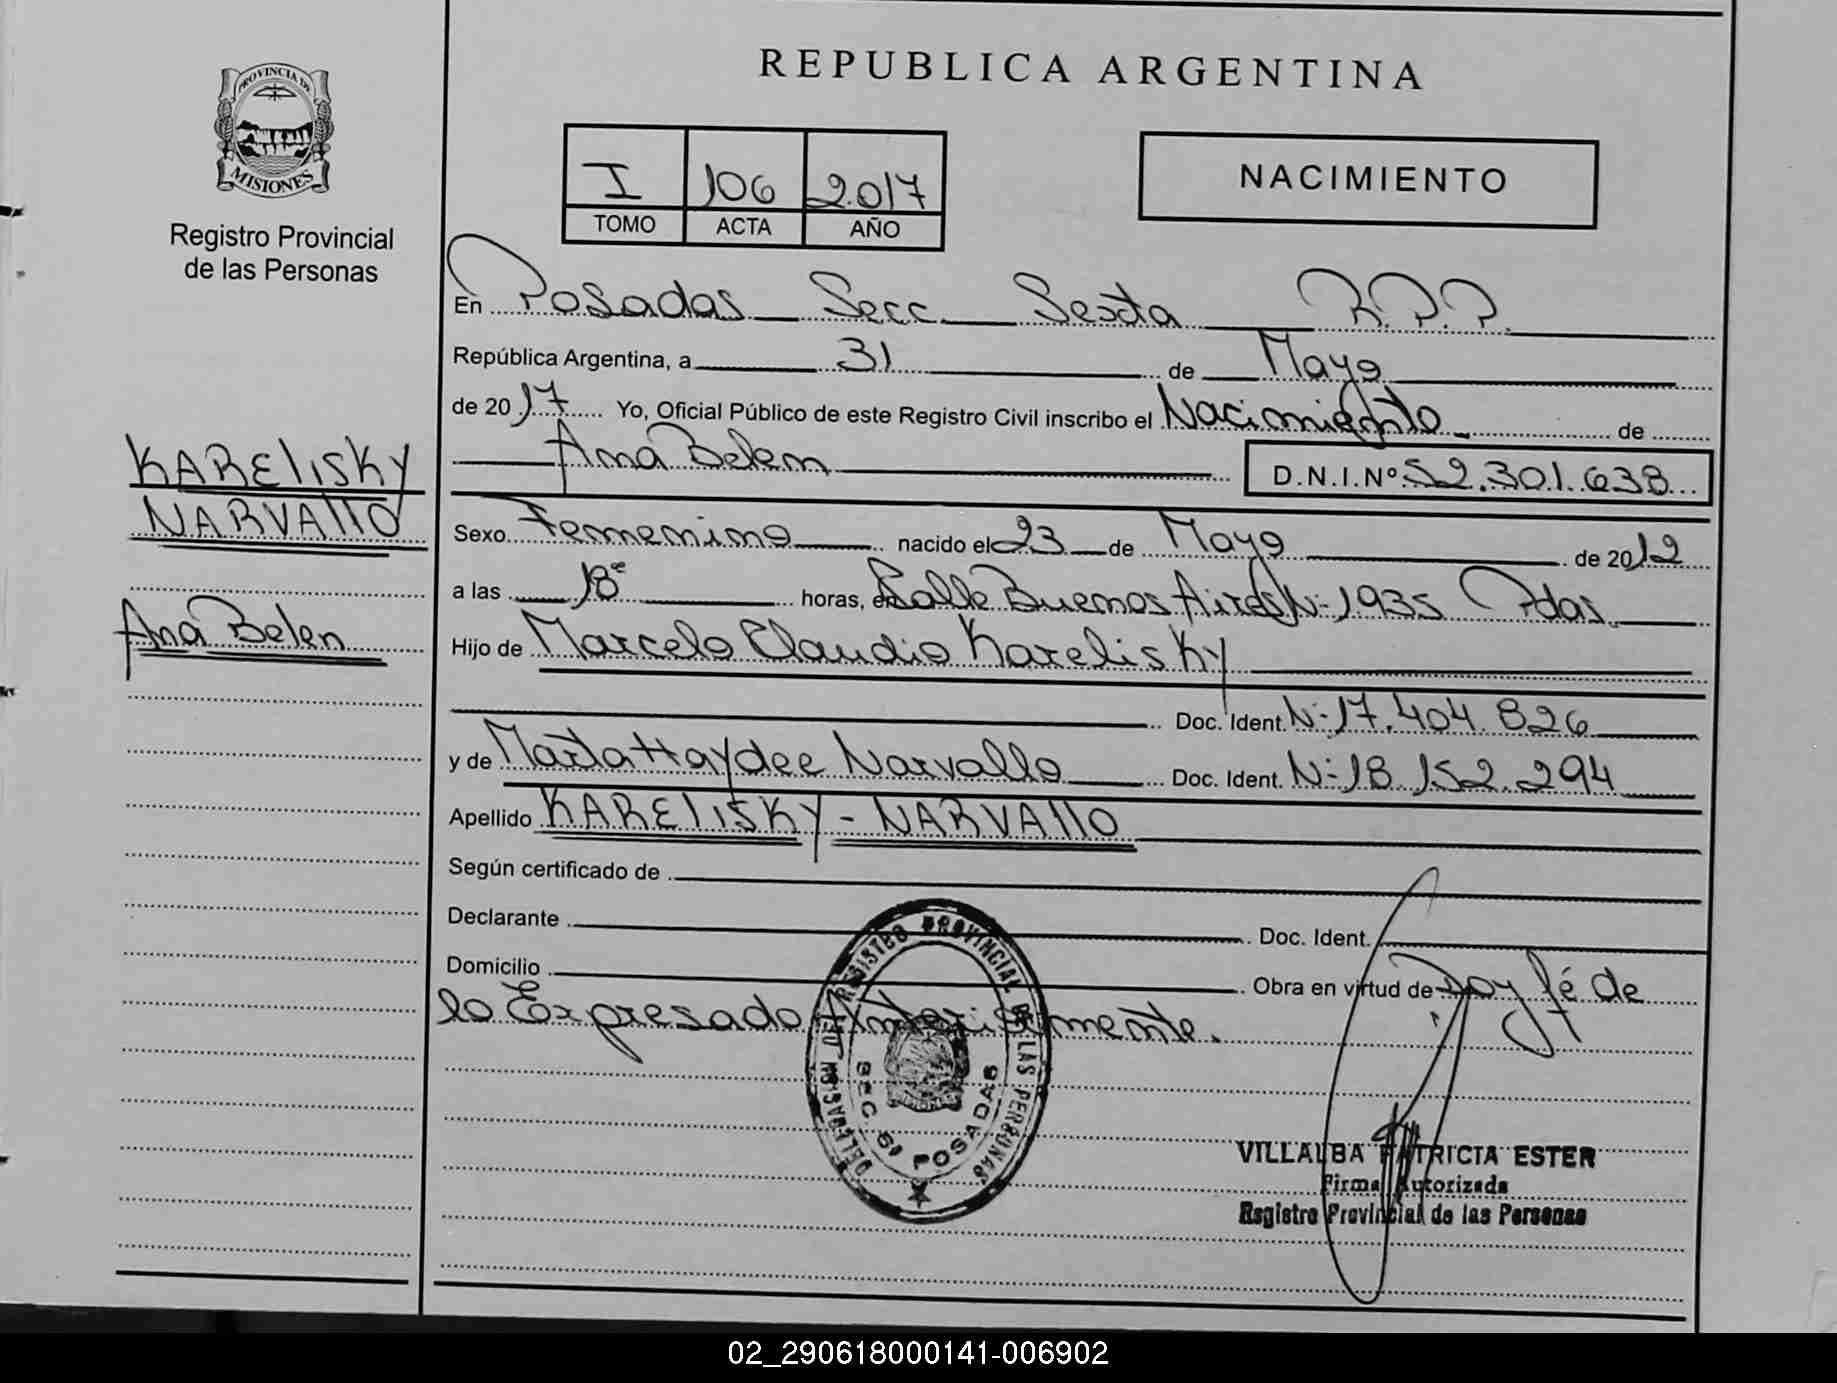 REPUBLICA ARGENTINA
PROVINCIA DE
MISIONES
Registro Provincial
de las Personas
I 106 2.017
TOMO ACTA AÑO
NACIMIENTO
En Posadas Secc. Sexta R.P.P.
República Argentina, a 31 de Mayo
de 2017 Yo, Oficial Público de este Registro Civil inscribo el Nacimiento de
Ana Belen D.N.I.Nº 52.301.638
KARELISKY
NARVALLO
Ana Belen
Sexo Femenino nacido el 23 de Mayo de 2012
a las 18ᵉ horas, en Calle Buenos Aires Nº 1935 Pdas.
Hijo de Marcelo Claudio Karelisky
Doc. Ident. Nº 17.404.826
y de Marta Haydee Narvallo Doc. Ident. Nº 18.152.294
Apellido KARELISKY - NARVALLO
Según certificado de
Declarante Doc. Ident.
Domicilio Obra en virtud de Doy fé de
lo Expresado Anteriormente.
REGISTRO PROVINCIAL DE LAS PERSONAS
SEC. 6ª POSADAS
VILLALBA PATRICIA ESTER
Firma Autorizada
Registro Provincial de las Personas
02_290618000141-006902